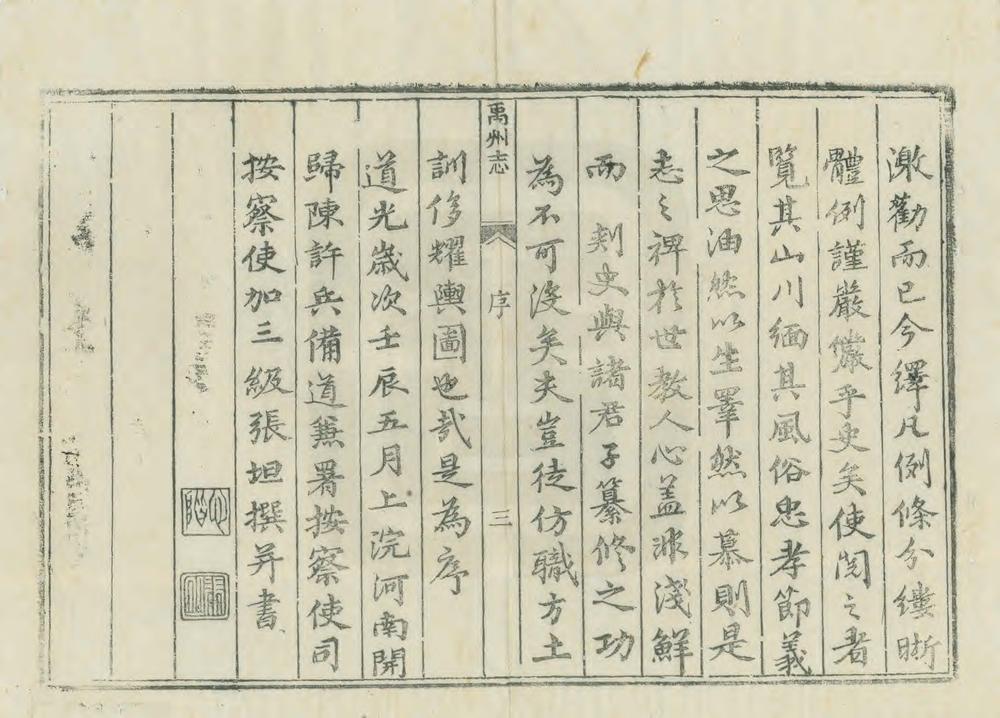 激勸而已今繹凡例條分縷晰
體例謹嚴儼乎史矣使閱之者
覽其山川緬其風俗忠孝節義
之思油然以生睪然以慕則是
志之裨於世教人心盖非淺鮮
而 刺史與諸君子纂修之功
為不可沒矣夫豈徒仿職方土
禹州志 序 三
訓侈耀輿圖也哉是為序
道光歲次壬辰五月上浣河南開
歸陳許兵備道兼署按察使司
按察使加三級張坦撰并書